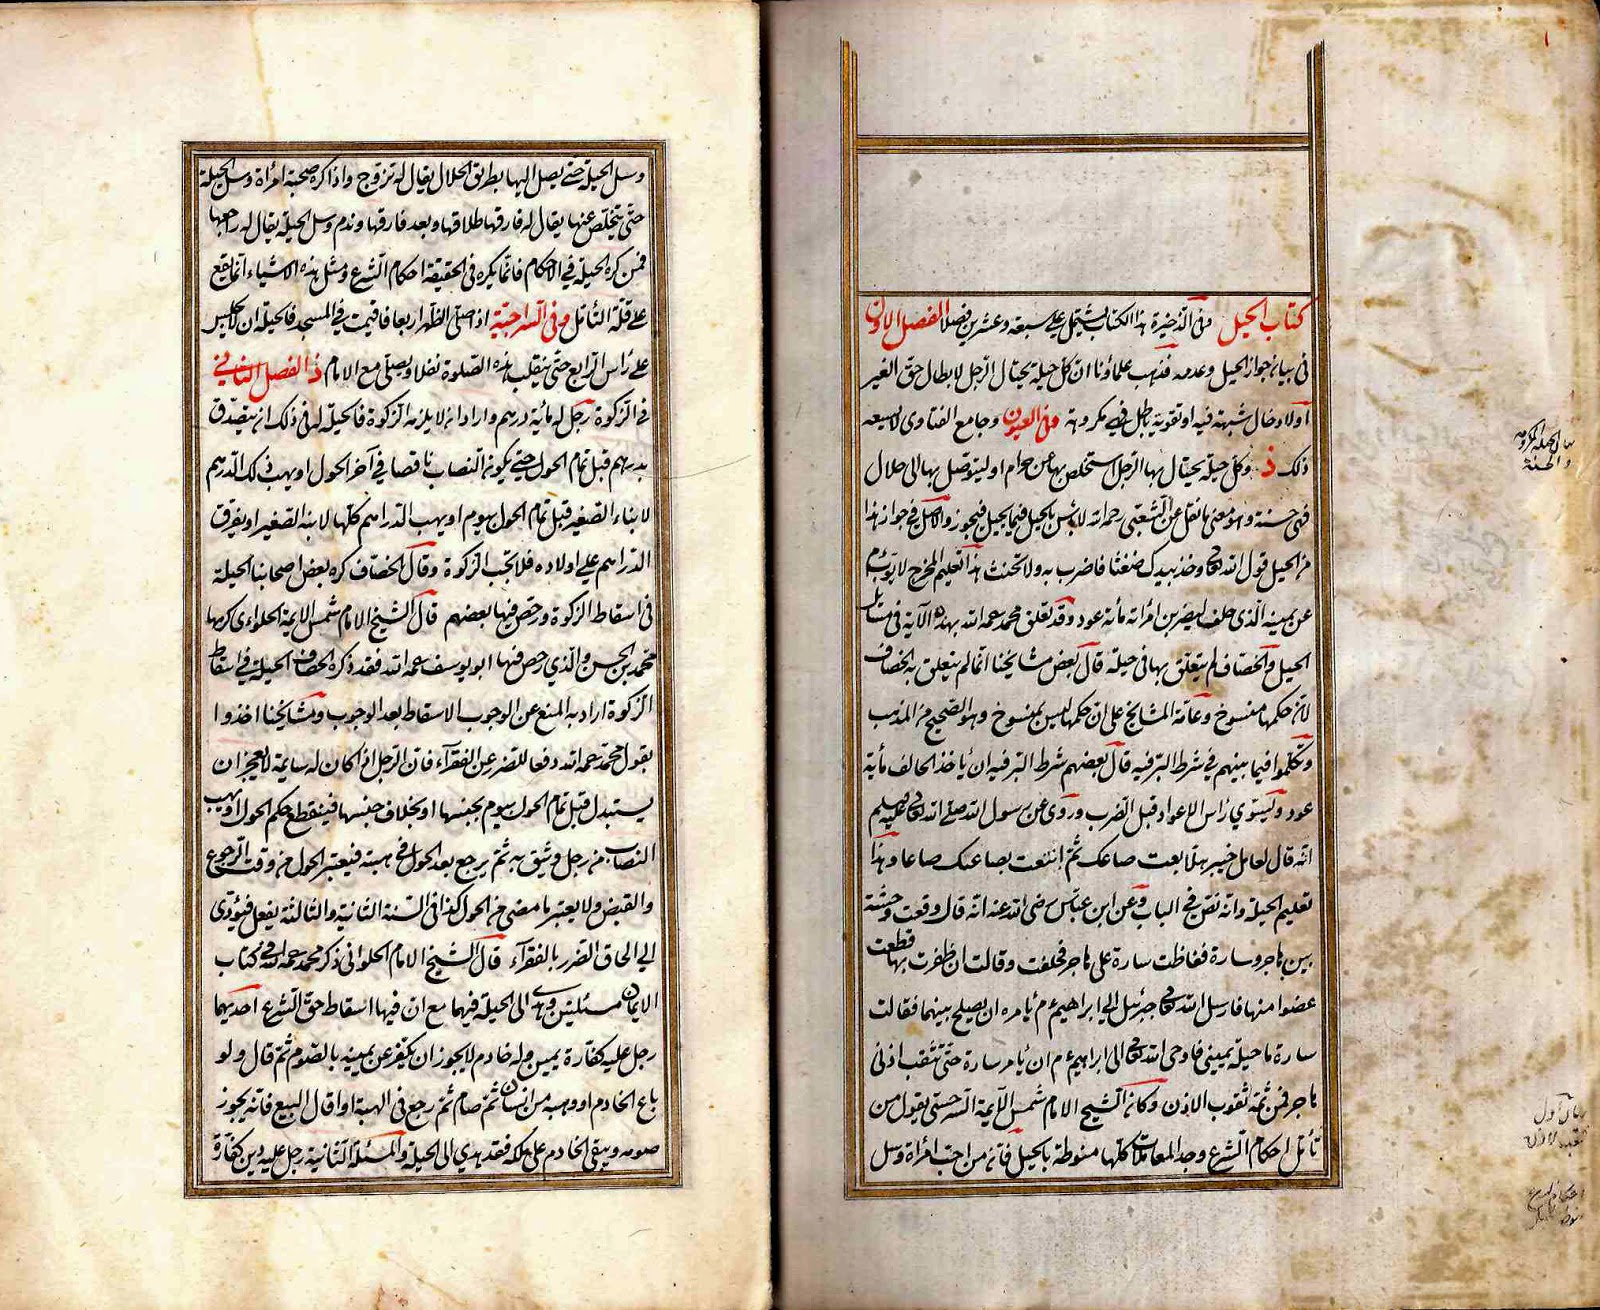 كتاب الحيل وفى الذخيرة هذا الكتاب يشتمل على سبعة وعشرين فصلا الفصل الاول
فى بيان جواز الحيل وعدمه فذهب علماؤنا ان كل حيلة يحتال الرجل لابطال حق الغير
او لادخال شبهة فيه او تقوية باطل فهى مكروهة وفى العيون وجامع الفتاوى لا يسعه
ذلك ذ وكل حيلة يحتال بها الرجل ليستخلص بها عن حرام او ليتوصل بها الى حلال
فهى حسنة وهو معنى ما نقل عن الشعبى رحمه الله لا بأس بالحيل فيما يحل فيجوز والاصل فى جواز هذا
من الحيل قول الله تعالى وخذ بيدك ضغثا فاضرب به ولا تحنث هذا تعليم المخرج لايوب عم
عن يمينه الذى حلف ليضربن امرأته مأة عود وقد تعلق محمد رحمه الله بهذه الآية فى مسائل
الحيل والخصاف لم يتعلق بها فى حيلة قال بعض مشايخنا انما لم يتعلق به الخصاف
لان حكمها منسوخ وعامة المشايخ على ان حكمها ليس بمنسوخ وهو الصحيح من المذهب
وتكلموا فيما بينهم فى شرط البر فيه قال بعضهم شرط البر فيه ان يأخذ الحالف مأية
عود ويستوى رأس الاعواد قبل الضرب وروى عن رسول الله صلى الله تعالى عليه وسلم
انه قال لعامل خيبر هلا بعت صاعك ثم ابتعت بصاعك صاعا وهذا
تعليم الحيلة وانه نص فى الباب وعن ابن عباس رضى الله عنه انه قال وقعت وحشة
بين هاجر وسارة فغاظت سارة على هاجر فحلفت وقالت ان ظفرت بها قطعت
عضوا منها فارسل الله تعالى جبرئيل الى ابراهيم عم يأمره ان يصلح بينهما فقالت
سارة ما حيلة يمينى فاوحى الله تعالى الى ابراهيم عم ان يأمر سارة حتى تثقب اذنى
هاجر فمن ثمه ثقوب الاذن وكان الشيخ الامام شمس الأيمة السرخسى يقول من
تأمل احكام الشرع وجد المعاملات كلها منوطة بالحيل فانه من احب امرأة وسل
وسل الحيلة حتى يصل اليها بطريق الحلال يقال له تزوج واذا كره صحبة امرأة وسل الحيلة
حتى يتخلص عنها يقال له فارقها طلاقها وبعد فارقها وندم وسل الحيلة يقال له راجعها
فمن كره الحيلة فى الاحكام فانما يكره فى الحقيقة احكام الشرع ومثل هذه الاشياء انما يقع
على قلة التأمل وفى السراجية اذا صلى الظهر اربعا فاقيمت فى المسجد فالحيلة ان لا يجلس
على رأس الرابع حتى ينقلب هذه الصلوة نفلا ويصلى مع الامام ذ الفصل الثانى
فى الزكوة رجل له مأية درهم واراد ان لا يلزمه الزكوة فالحيلة له فى ذلك ان يتصدق
بدرهم قبل تمام الحول حتى يكون النصاب ناقصا فى آخر الحول او يهب ذلك الدرهم
لابناء الصغير قبل تمام الحول بيوم او يهب الدراهم كلها لابنه الصغير او يفرق
الدراهم على اولاده فلا تجب الزكوة وقال الخصاف كره بعض اصحابنا الحيلة
فى اسقاط الزكوة ورخص فيها بعضهم قال الشيخ الامام شمس الايمة الحلوائى كرهها
محمد بن الحسن والذى رخص فيها ابو يوسف رحمه الله فقد ذكر الخصاف الحيلة فى اسقاط
الزكوة اراد به المنع عن الوجوب لا الاسقاط بعد الوجوب ومشايخنا اخذوا
بقول محمد رحمه الله دفعا للضرر عن الفقرآء فان الرجل اذا كان له سايمة لا يعجز ان
يستبدل قبل تمام الحول بيوم بجنسها او بخلاف جنسها فينقطع حكم الحول او يهب
النصاب من رجل وثيق به ثم يرجع بعد الحول فى هبته فيعتبر الحول من وقت الرجوع
والقبض ولا يعتبر ما مضى من الحول كذا فى السنة الثانية والثالثة يفعل فيؤدى
الى الحاق الضرر بالفقرآء قال الشيخ الامام الحلوانى ذكر محمد رحمه الله فى كتاب
الايمان مسئلتين وهدى الى الحيلة فيهما مع ان فيها اسقاط حق الشرع احديهما
رجل عليه كفارة يمين وله خادم لا يجوز ان يكفر عن يمينه بالصوم ثم قال ولو
باع الخادم او وهبه من انسان ثم صام ثم رجع فى الهبة او اقال البيع فانه يجوز
صومه ويبقى الخادم على ملكه فقد هدى الى الحيلة والمسئلة الثانية رجل عليه دين كفارة